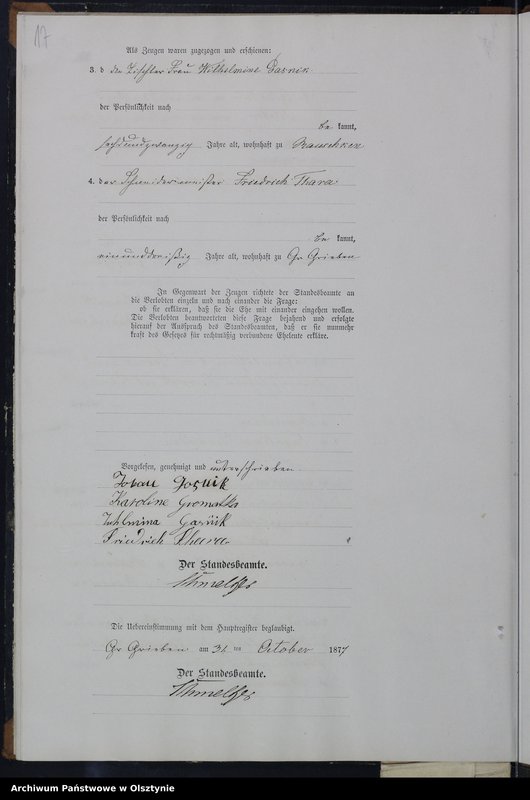 17
Als Zeugen waren zugezogen und erschienen:
3. d die Tischler Frau Wilhelmine Gasnik
der Persönlichkeit nach
be kannt,
sechsundzwanzig Jahre alt, wohnhaft zu Rauschken
4. der Schneidermeister Friedrich Thara
der Persönlichkeit nach
be kannt,
einunddreißig Jahre alt, wohnhaft zu Gr Grieben
In Gegenwart der Zeugen richtete der Standesbeamte an
die Verlobten einzeln und nach einander die Frage:
ob sie erklären, daß sie die Ehe mit einander eingehen wollen.
Die Verlobten beantworteten diese Frage bejahend und erfolgte
hierauf der Ausspruch des Standesbeamten, daß er sie nunmehr
kraft des Gesetzes für rechtmäßig verbundene Eheleute erkläre.
Vorgelesen, genehmigt und unterschrieben
Johan Gasnik
Karoline Gromatka
Gasnik
Friedrich Thara
Der Standesbeamte.
Die Uebereinstimmung mit dem Hauptregister beglaubigt.
Gr Grieben am ten October 1877
Der Standesbeamte.
Archiwum Państwowe w Olsztynie